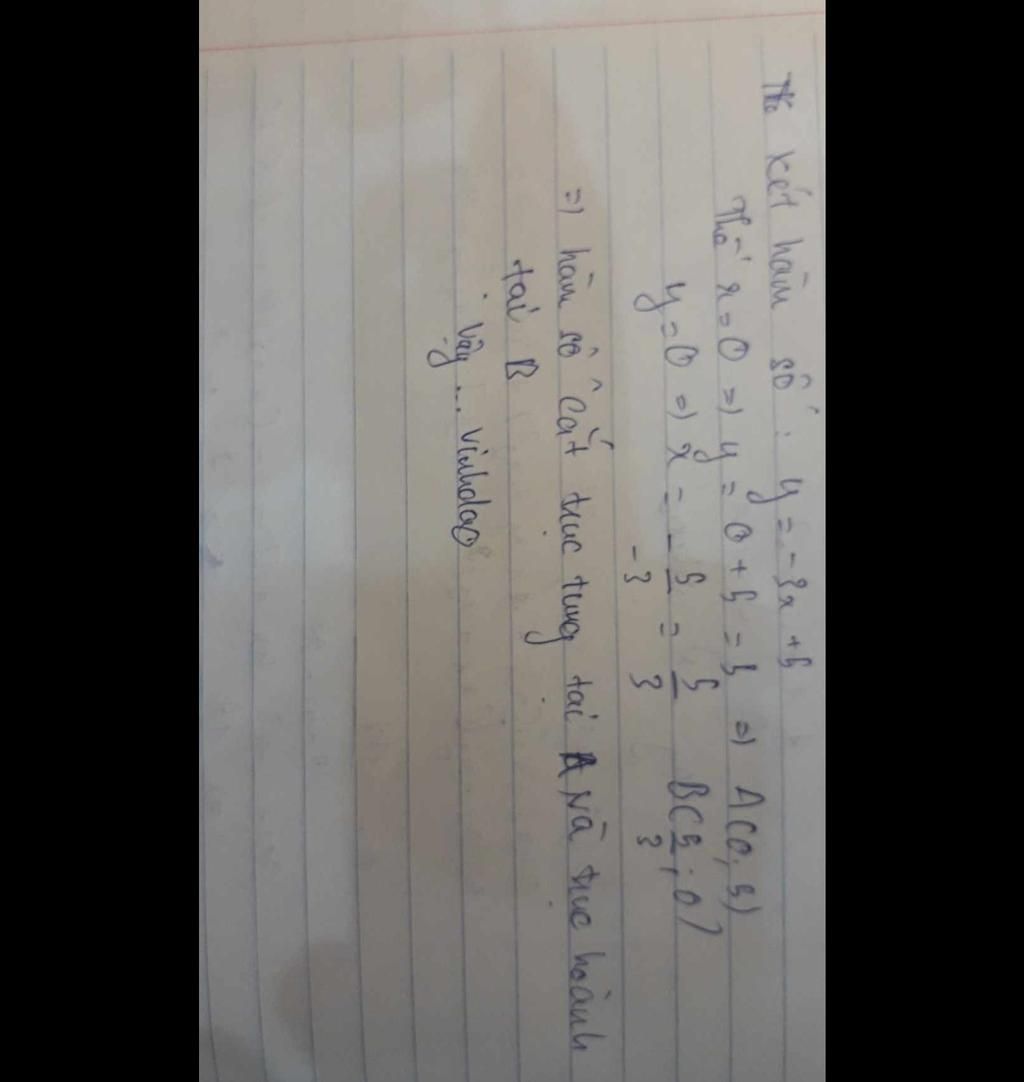 Kết hàm số: y = -3x + 5
Thế x = 0 => y = 0 + 5 = 5 => A(0; 5)
y = 0 => x = -5/-3 = 5/3 B(5/3; 0)
=> hàm số cắt trục tung tại A và trục hoành
tại B
Vậy... vinhdao